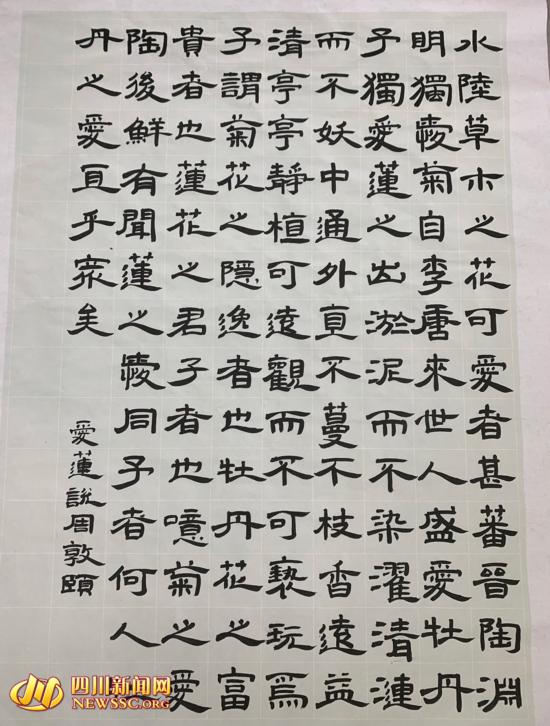 水陸草木之花可愛者甚蕃晉陶淵
明獨愛菊自李唐來世人盛愛牡丹
予獨愛蓮之出淤泥而不染濯清漣
而不妖中通外直不蔓不枝香遠益
清亭亭靜植可遠觀而不可褻玩焉
予謂菊花之隱逸者也牡丹花之富
貴者也蓮花之君子者也噫菊之愛
陶後鮮有聞蓮之愛同予者何人
丹之愛宜乎眾矣
愛蓮說周敦頤
四川新闻网
NEWSSC.ORG